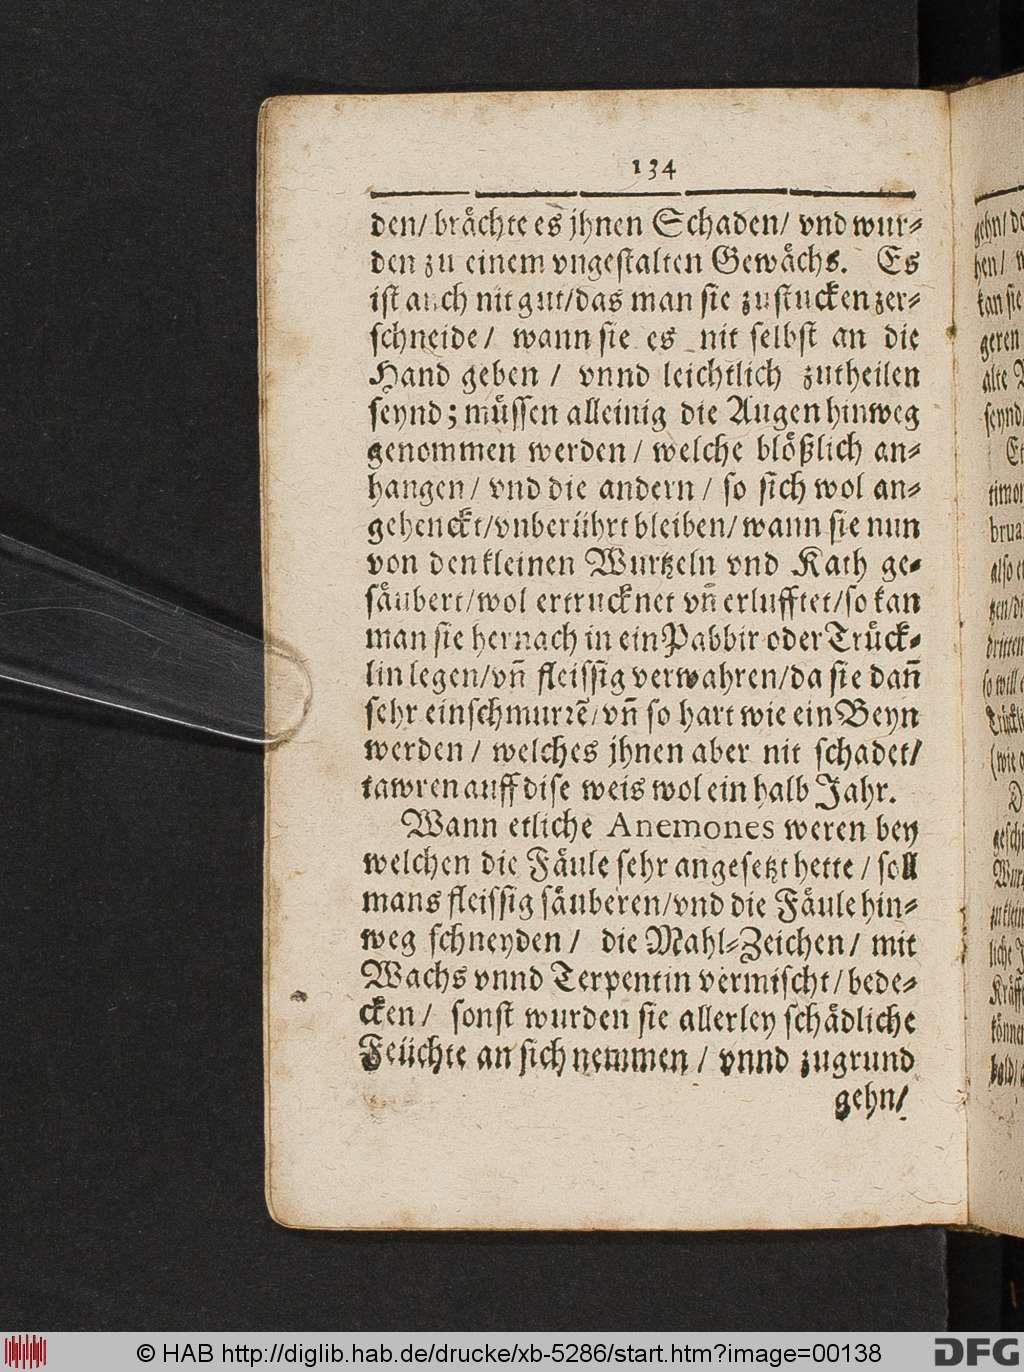 134
den/ brächte es jhnen Schaden/ vnd wur-
den zu einem vngestalten Gewächs. Es
ist auch nit gut/das man sie zustucken zer-
schneide/ wann sie es nit selbst an die
Hand geben / vnnd leichtlich zutheilen
seynd; müssen alleinig die Augen hinweg
genommen werden/ welche blößlich an-
hangen/ vnd die andern / so sich wol an-
gehenckt/vnberührt bleiben/wann sie nun
von den kleinen Wurtzeln vnd Kath ge-
säubert/wol ertrucknet vn̄ erlufftet/so kan
man sie hernach in ein Pabbir oder Trück-
lin legen/vn̄ fleissig verwahren/da sie dan̄
sehr einschmurrē/vn̄ so hart wie ein Beyn
werden / welches jhnen aber nit schadet/
tawren auff dise weis wol ein halb Jahr.
Wann etliche Anemones weren bey
welchen die Fäule sehr angesetzt hette / soll
mans fleissig säuberen/vnd die Fäule hin-
weg schneyden / die Mahl-Zeichen/ mit
Wachs vnnd Terpentin vermischt/bede-
cken / sonst wurden sie allerley schädliche
Feüchte an sich nemmen / vnnd zugrund
gehn/
gehn/
geren
seynd
timor
also
dritten
so will
© HAB http://diglib.hab.de/drucke/xb-5286/start.htm?image=00138
DFG